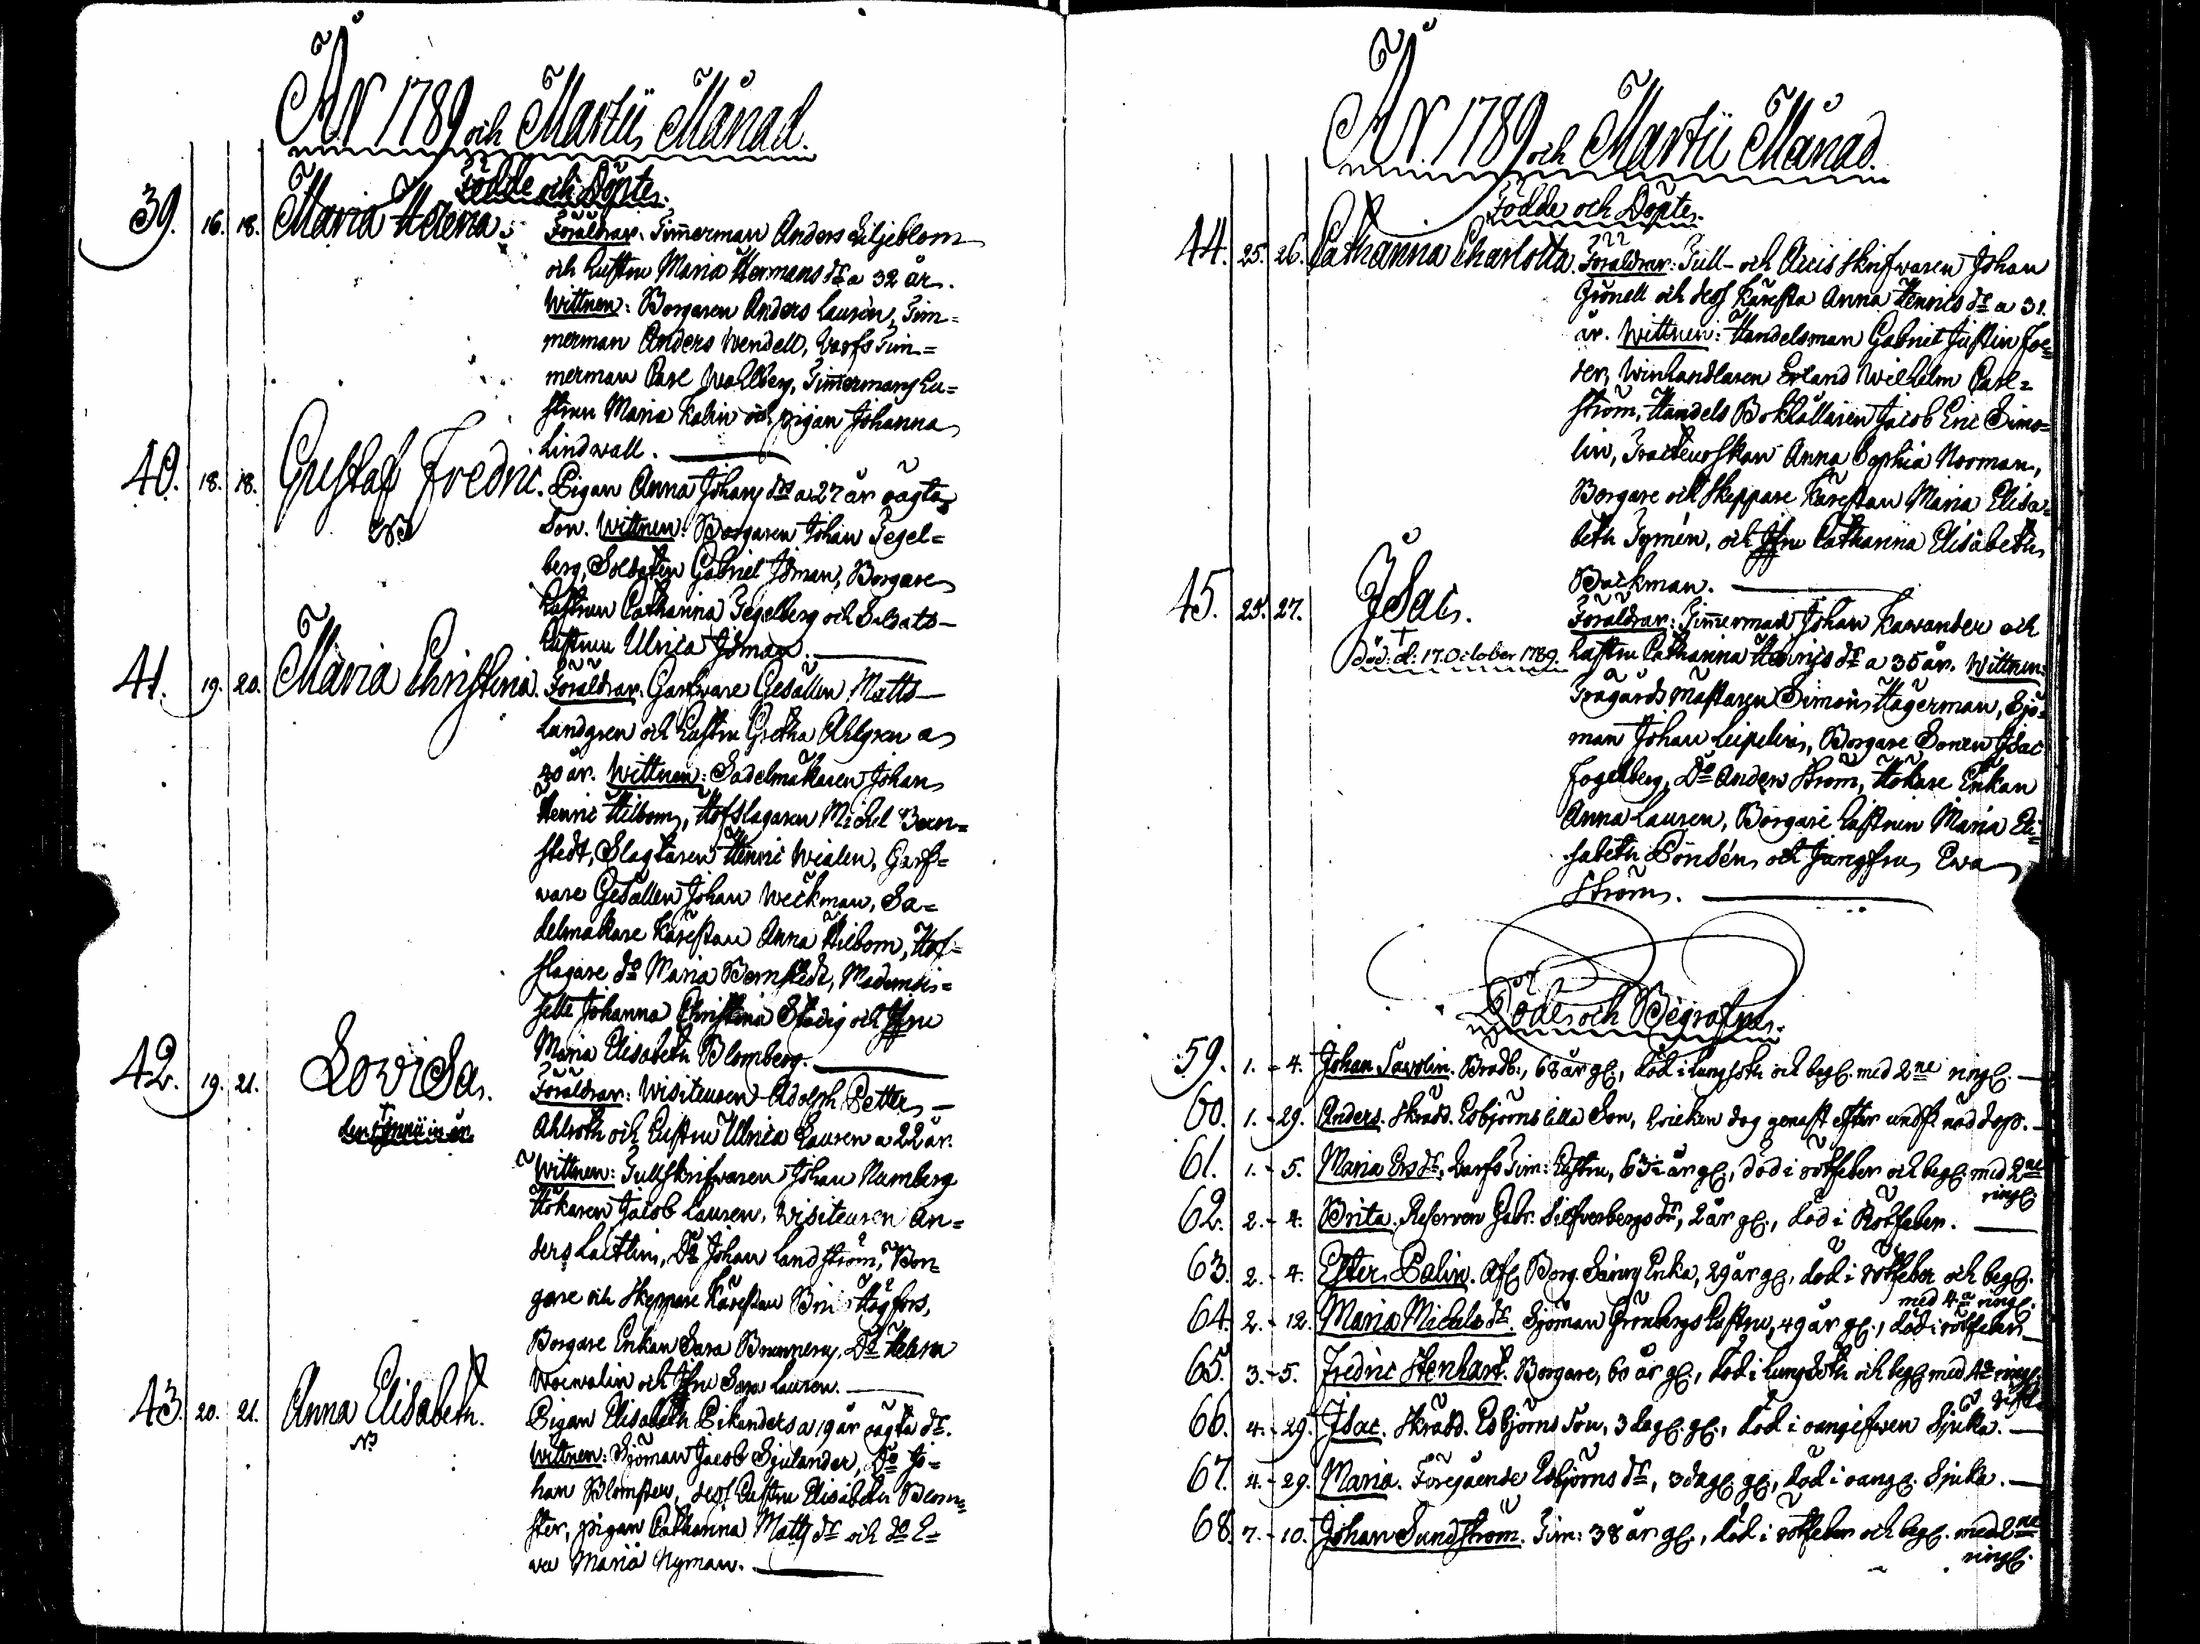 År 1789 och Martii Månad.
Födde och Döpte.
39. 16. 18. Maria Helena. Föräldrar. Timmerman Anders Liljeblom
och hustru Maria Hermans dr a 32 år.
Wittnen: Borgaren Anders Laurén, Tim=
merman Anders Wendell, Varfs Tim=
merman Carl Wahlberg, Timmermans hu=
strun Maria Kalin och pigan Johanna
Lindwall.
40. 18. 18. Gustaf Fredric. Pigan Anna Johans dr a 27 år oägta
NB Son. Wittnen: Borgaren Johan Tegel=
berg, Soldaten Gabriel Isman, Borgare
hustrun Catharina Tegelberg och Soldats
hustrun Ulrica Isman.
41. 19. 20. Maria Christina. Föräldrar. Garfvare Gesällen Matts
Landgren och hustru Gretha Ahlgren a
30 år. Wittnen: Sadelmakaren Johan
Henric Hilbom, Hofslagaren Michel Bern=
stedt, Slagtaren Henric Wialen, Garf=
vare Gesällen Johan Weckman, Sa=
delmakare Kärestan Anna Hilbom, Hof=
slagare do Maria Bernstedt, Mademois=
selle Johanna Christina Stadig och Jfru
Maria Elisabeth Blomberg.
42. 19. 21. Lovisa. Föräldrar: Visiteuren Adolph Petter
Ahlroth och hustru Ulrica Lauren a 22 år.
Wittnen: Tullskrifvaren Johan Numberg
Hökaren Jacob Lauren, Visiteuren An=
ders Laitlin, Do Johan Landström, Bor=
gare och Skeppare Kärestan Brit Högfors,
Borgare Enkan Sara Brunnern, Do Helena
och Jfru Sara Lauren.
43. 20. 21. Anna Elisabeth. Pigan Elisabeth Pikanders a 19 år oägta dr.
NB Wittnen: Sjöman Jacob Sjulander, Do Jo=
han Blomster, dess hustru Elisabeth Blom=
ster, pigan Catharina Matts dr och do E=
va Maria Nyman.
År 1789 och Martii Månad.
Födde och Döpte.
44. 25. 26. Catharina Charlotta. Föräldrar: Tull- och Accis skrifvaren Johan
Grönell och dess Käresta Anna Henrics dr a 31.
år. Wittnen: Handelsman Gabriel Justin Foe=
der, Winhandlaren Erland Wilhelm Carl=
ström, Handels Bokhållaren Jacob Eric Simo=
lin, Tracteurskan Anna Sophia Norman,
Borgare och Skeppare Kärestan Maria Elisa=
beth Tymén, och Jfru Catharina Elisabeth
Backman.
45. 25. 27. Isac. Föräldrar: Timmerman Johan Kavander och
död: d: 17. October 1789. hustru Catharina Henrics dr a 35 år. Wittnen:
Trägårds Mästaren Simon Hägerman, Sjö=
man Johan Leipelius, Borgare Sonen Isac
Fogelberg, Do Anders Ström, Hökare Enkan
Anna Lauren, Borgare hustrun Maria Eli=
sabeth Pönsén och Jungfru Eva
Ström.
Döde och Begrafne.
59. 1. - 4. Johan Savolin. Brodb., 68 år gl., död i lungsoth och begl. med 2ne ringl.
60. 1. - 29. Anders. Skrädd. Esbjörns lilla Son, hvilken dog genast efter undfl. nöd dop.
61. 1. - 5. Maria Ers dr, Varfs Tim: hustru, 63 1/2 år gl., död i rötfeber och begl. med 2ne
ringl.
62. 2. - 4. Brita. Reserven Gabr. Silfverbergs dr, 2 år gl., död i Rötfeber.
63. 2. - 4. Ester Palin. Afl. Borg. Enka, 29 år gl., död i rötfeber och begl.
med 4a ringl.
64. 2. - 12. Maria Michels dr. Sjöman Grönbergs hustru, 49 år gl., död i rötfeber
65. 3. - 5. Fredric Stenhart. Borgare, 60 år gl., död i lungsoth och begl. med 4a ringl.
66. 4. - 29. Isac. Skrädd. Esbjörns Son, 3 dagl. gl., död i oangifven Sjuka.
67. 4. - 29. Maria. Föregående Esbjörns dr, 3 dagl. gl., död i oangl. Sjuka.
68. 7. - 10. Johan Sundström. Tim: 38 år gl., död i rötfeber och begl. med 2ne
ringl.